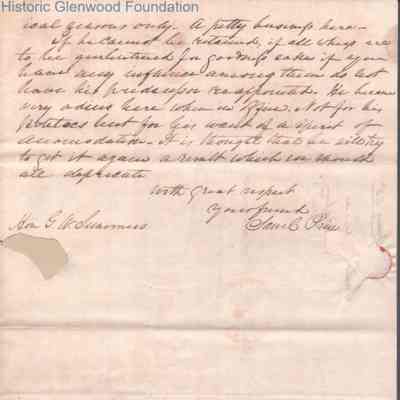 Historic Glenwood Foundation
ical reasons only. A petty business here.
If he cannot be retained, if all whigs are
to be guillotined for goodness sakes if you
have any influence among them do not
have his predecessor reappointed. He became
very odious here when in office. Not for his
politics but for his want of a spirit of
accomodation. It is thought that he will try
to get it again a result which we should
all deprecate
With great respect
Your friend
Saml. Price
Hon G. W. Summers